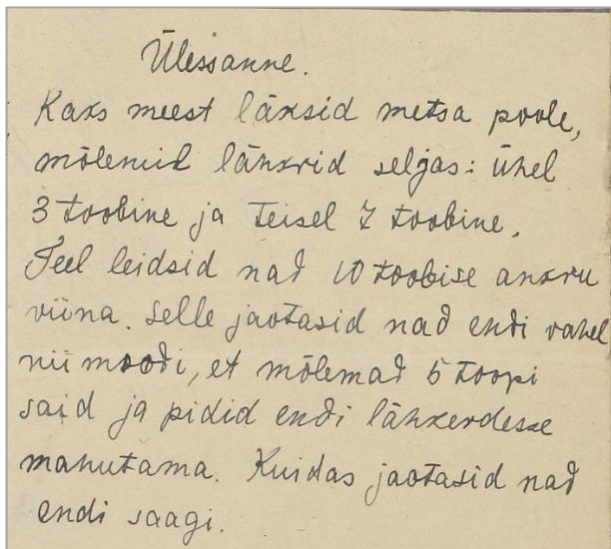 Ülessanne.
Kaks meest läksid metsa poole,
mõlemil länkrid seljas: ühel
3 toobine ja teisel 7 toobine.
Teel leidsid nad 10 toobise ankru
viina. Selle jaotasid nad endi vahel
nii moodi, et mõlemad 5 toopi
said ja pidid endi lähkerdesse
mahutama. Kuidas jaotasid nad
endi saagi.